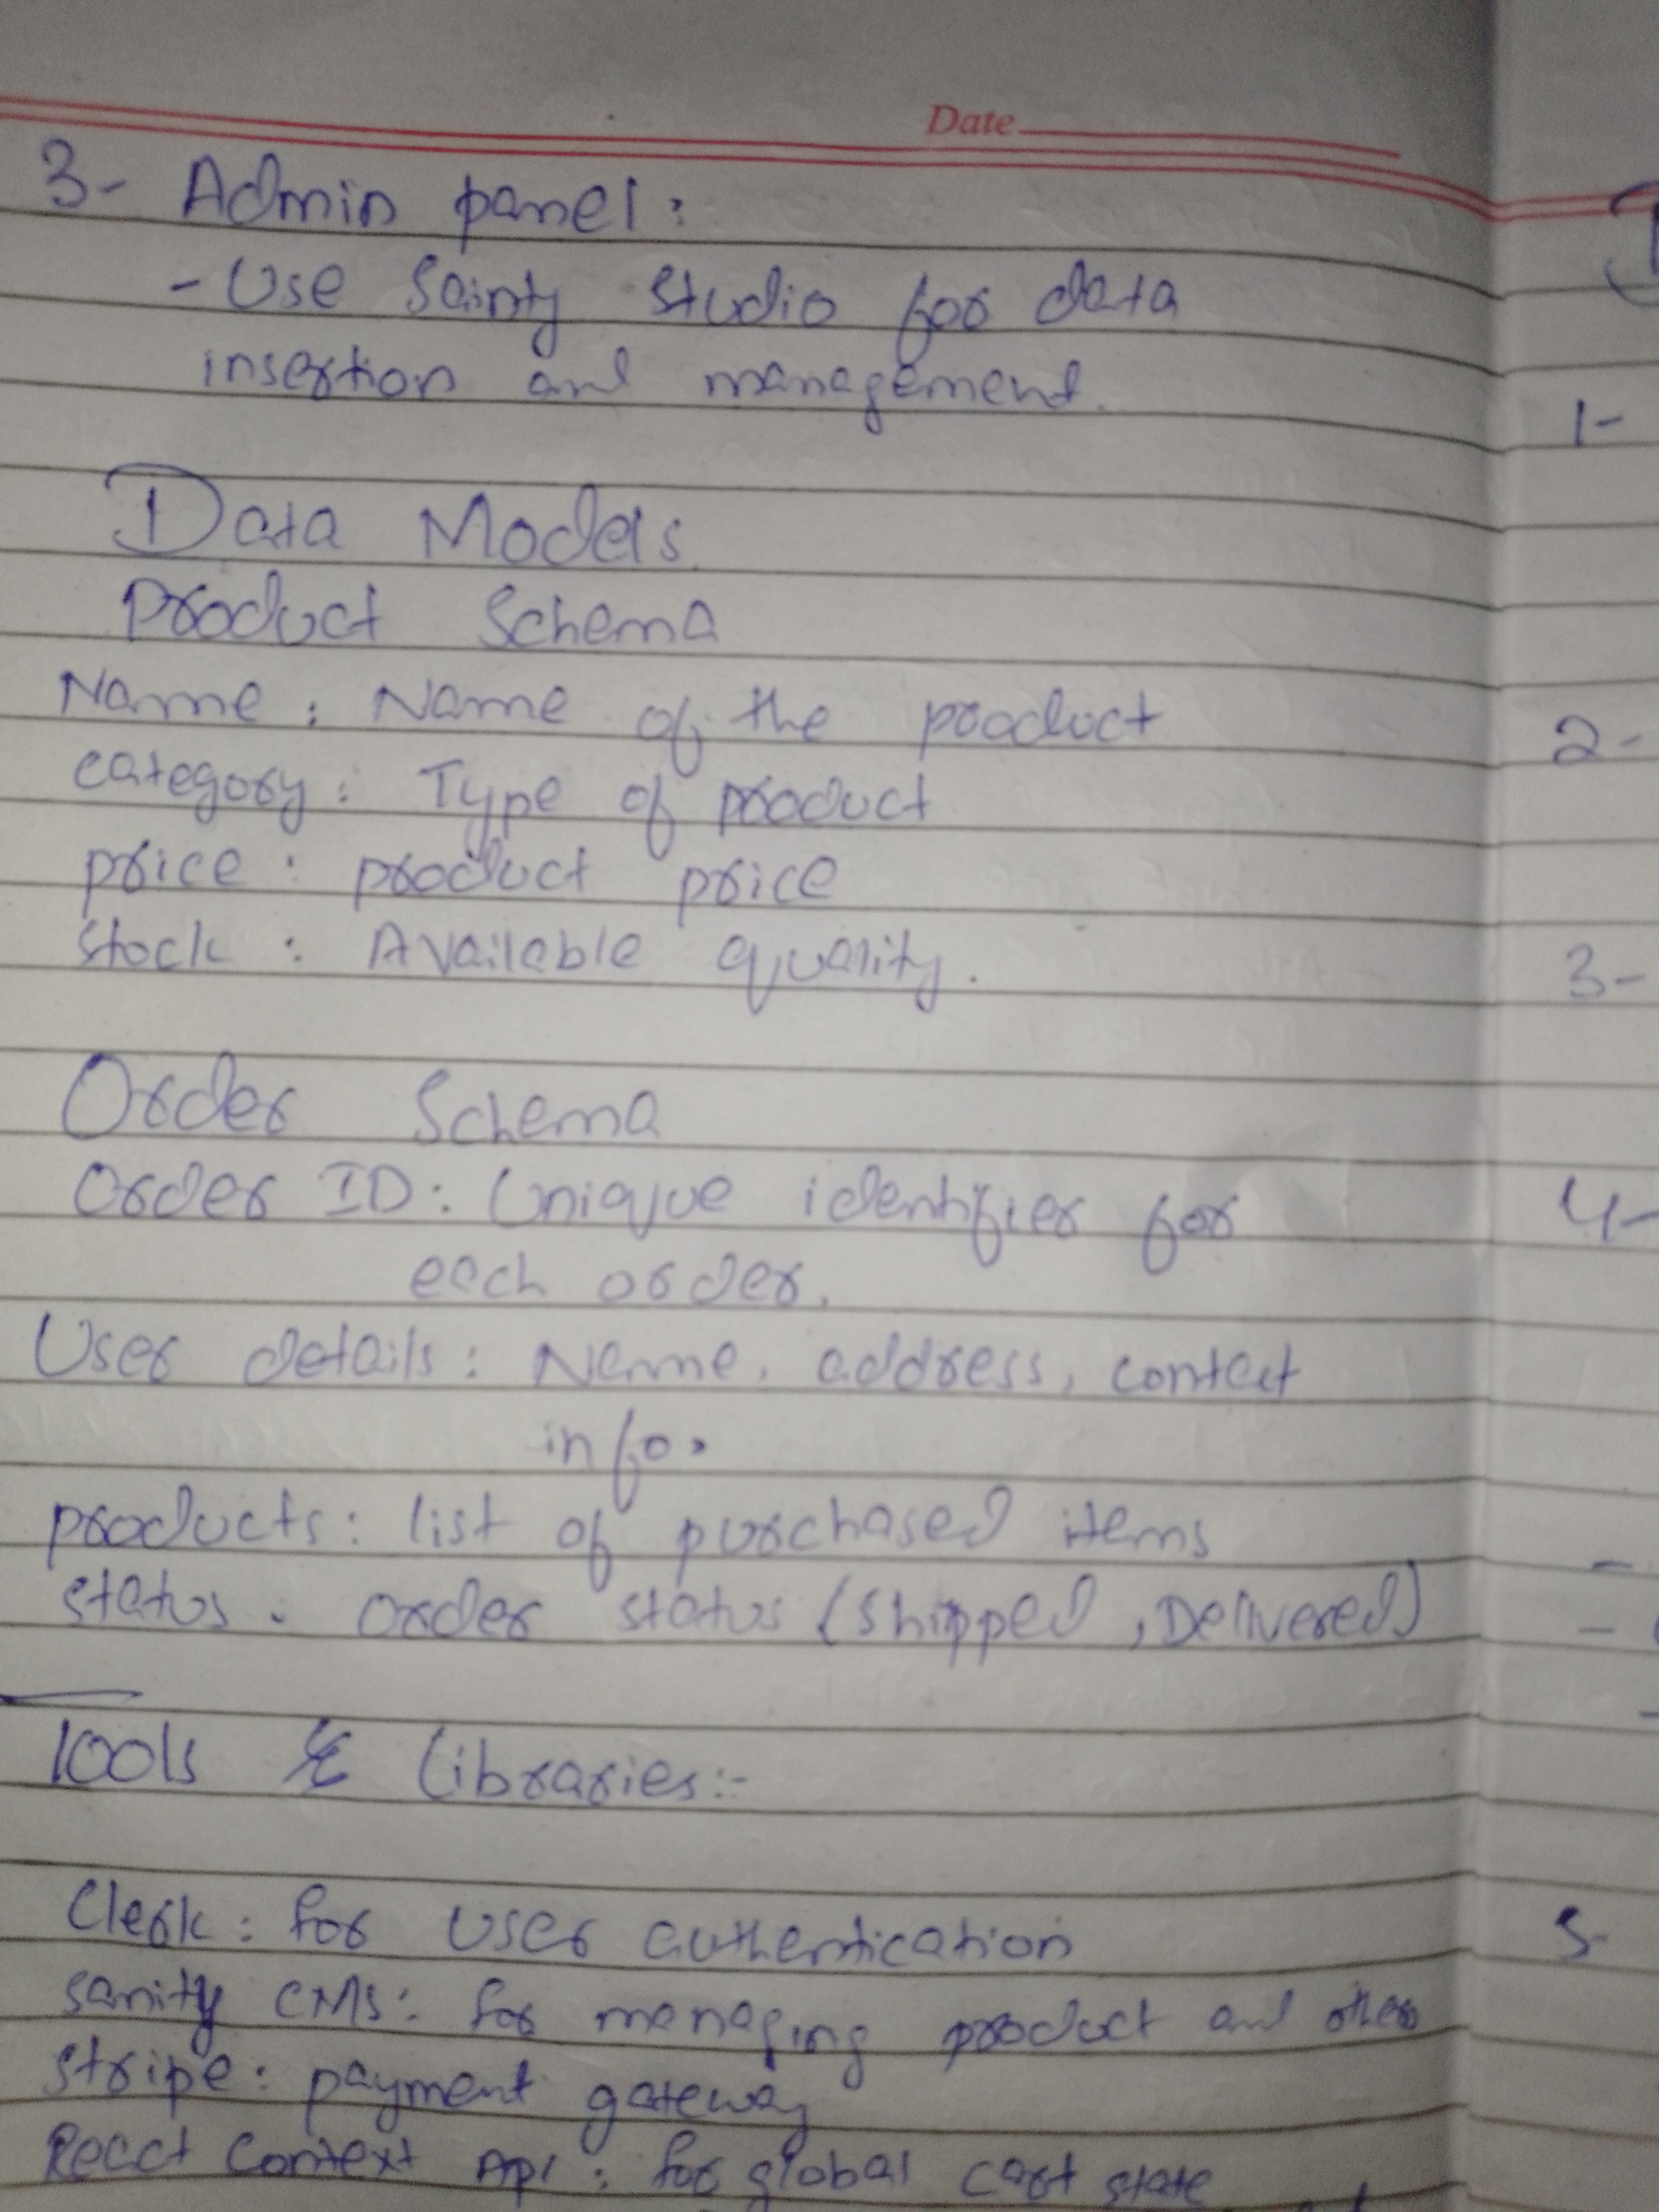 Date
3- Admin panel:
- Use Sainty Studio for data
insertion and management.
Data Models
Product Schema
Name : Name of the product
category : Type of product
price : product price
Stock : Available quality.
Order Schema
Order ID : Unique identifier for
each order.
User details : Name, address, contact
info.
products : list of purchased items
status : order status (Shipped, Delivered)
Tools & Libraries:-
Clerk : for user authentication
sanity CMS : for managing product and other
stripe : payment gateway
React Context Api : for global cart state
1-
2-
3-
4-
5-